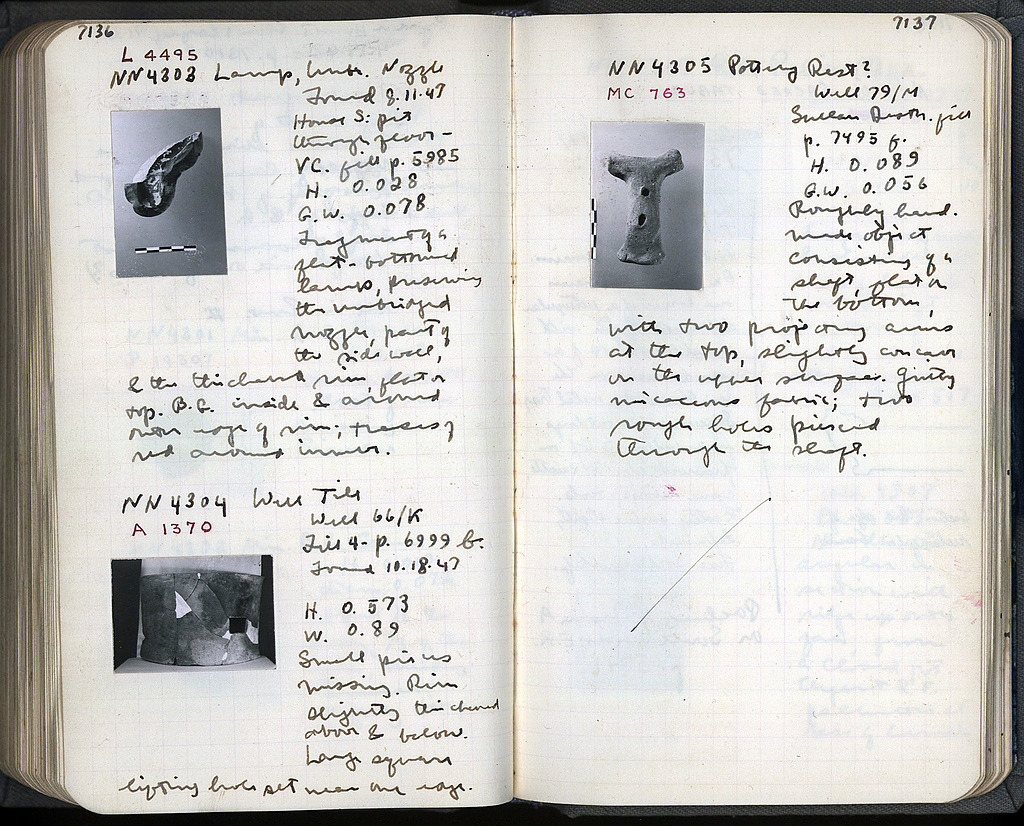 7136
L 4495
NN4303 Lamp, Unbr. Nozzle
Found 8.11.47
House S: pit
through floor –
VC. fill p. 5985
H. 0.028
G.W. 0.078
Fragment of a
flat-bottomed
lamp, preserving
the unbridged
nozzle, part of
the side wall,
& the thickened rim, flat on
top. B.G. inside & around
outer edge of rim; traces of
red around inner.
NN4304 Well Tile
A 1370
Well 66/K
Fill 4 - p. 6999 ff.
Found 10.18.47
H. 0.573
W. 0.89
Small pieces
missing. Rim
slightly thickened
above & below.
Large square
lifting hole set near one edge.
7137
NN4305 Pottery Rest?
MC 763
Well 79/M
Sullan Destr. fill
p. 7495 f.
H. 0.089
G.W. 0.056
Roughly hand-
made object
consisting of a
shaft, flat on
the bottom,
with two projecting arms
at the top, slightly concave
on the upper surface. Gritty
micaceous fabric; two
rough holes pierced
through the shaft.